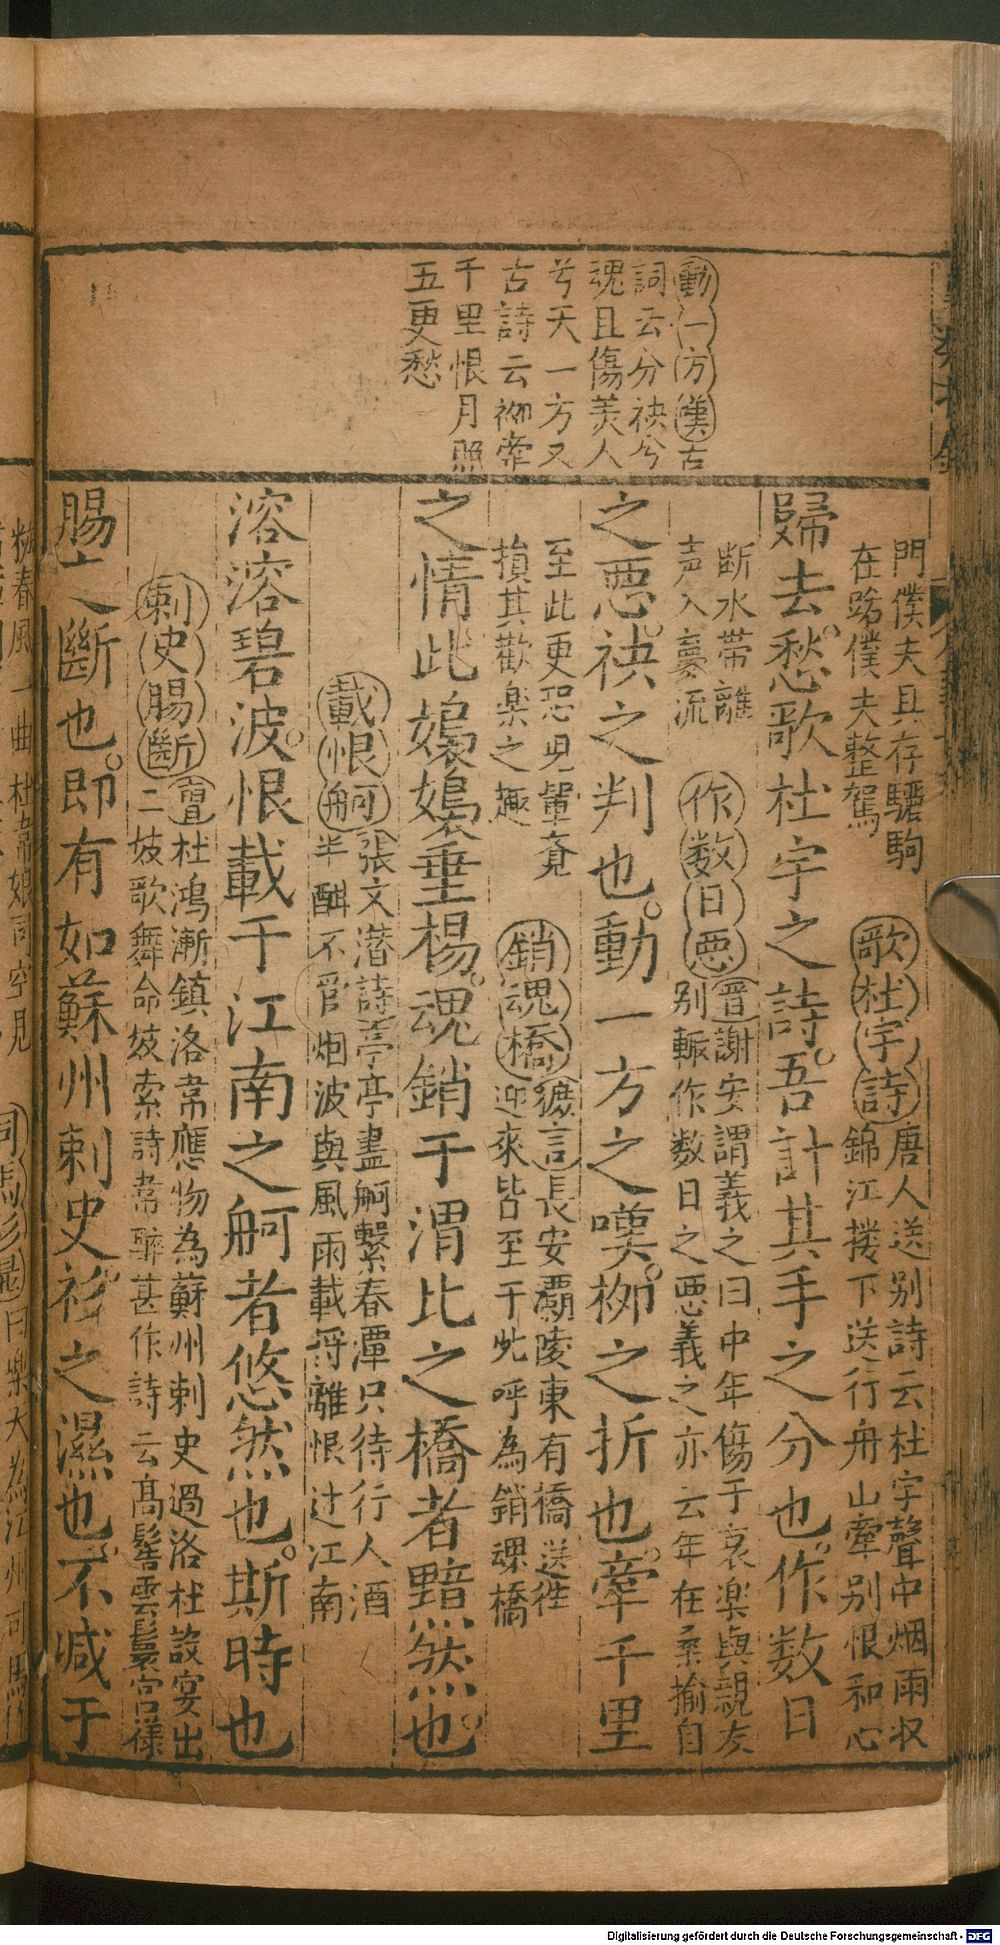 動一方嘆古
詞云分袂兮
魂且傷美人
兮天一方又
古詩云柳牽
千里恨月照
五更愁
門僕夫具存驪駒
在路僕夫整駕
歌杜宇詩唐人送别詩云杜宇聲中烟雨収
錦江楼下送行舟山牽别恨和心
歸去愁歌杜宇之詩吾計其手之分也作数日
断水带離
声入夢流
作数日惡晋謝安謂義之曰中年傷于哀楽與親友
别輙作数日之惡義之亦云年在桑揄自
之惡袂之判也動一方之嘆柳之折也牽千里
至此更恐兒輩竟
損其歡楽之趣
銷魂橋摭言長安覇陵東有橋送徃
迎來皆至于此呼為銷魂橋
之情此嬝嬝垂楊魂銷于渭北之橋者黯然也
載恨舸張文潜詩亭亭畫舸繫春潭只待行人酒
半酣不管烟波與風雨載将離恨过江南
溶溶碧波恨載于江南之舸者悠然也斯時也
刺史腸斷宣杜鴻漸鎮洛韋應物為蘇州刺史過洛杜設宴出
二妓歌舞命妓索詩韋醉甚作詩云髙髻雲鬟宫様
腸之斷也即有如蘇州刺史衫之濕也不减于
粧春風一曲杜韋娘司空見
Digitalisierung gefördert durch die Deutsche Forschungsgemeinschaft - DFG